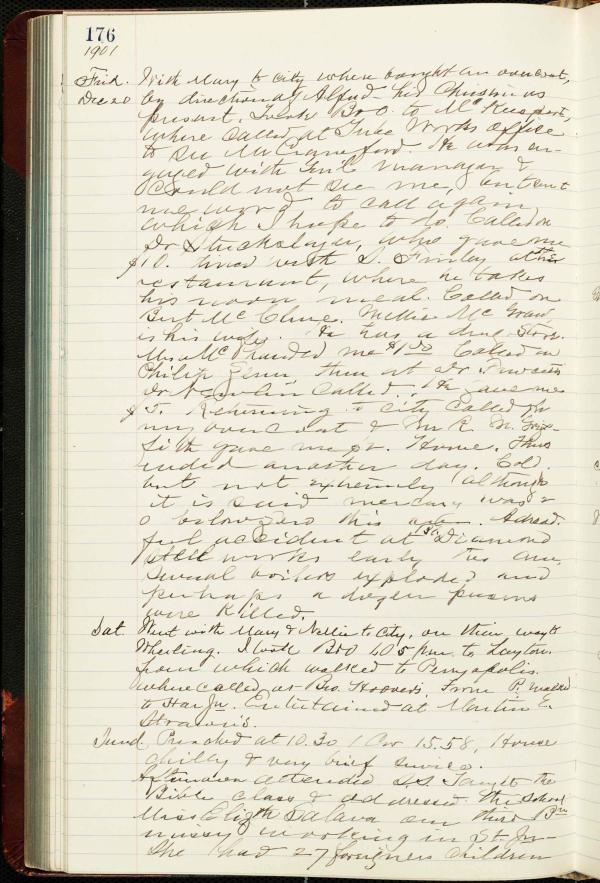 176
1901
Frid. With Mary to city where bought an overcoat,
Dec 20 by direction of Alfred his Christmas
present. Took B&O to McKeesport,
where called at Tube Works office
to see Mr Crawford. He was en-
gaged with Gen'l manager &
could not see me, but sent
me word to call again
which I hope to do. Called on
Dr, who gave me
$10. Dined with S. Finley at the
restaurant, where he takes
his noon meal. Called on
Bert McClure. Nellie McGraw
is his wife. He has a drug store.
Mrs Mc handed me $1.00 Called on
Philip, then at Dr
Dr called. He gave me
$5. Returning to city called for
my overcoat & Mr R. M.
fith gave me $2. Home. Thus
ended another day. Cold.
but not extremely although
it is said mercury was 2
0 below zero this. A dread-
ful accident at the Diamond
steel works early this am,
several boilers exploded and
perhaps a dozen persons
were killed.
Sat. Went with Mary & Nellie to City, on their way to
Wheeling. I took B&O 4.05 pm. to Layton.
from which walked to Perryopolis.
where called at Bro. Hoover's. From P. walked
to Star Jn. Entertained at Martin E.
Strawn's.
Sund. Preached at 10.30 1 Cor 15.58, House
chilly & very brief service.
Afternoon attended S.S. Taught the
Bible class & addressed the school
Miss Elizth our third
missy working in St. Jn
She had 27 foreigners children